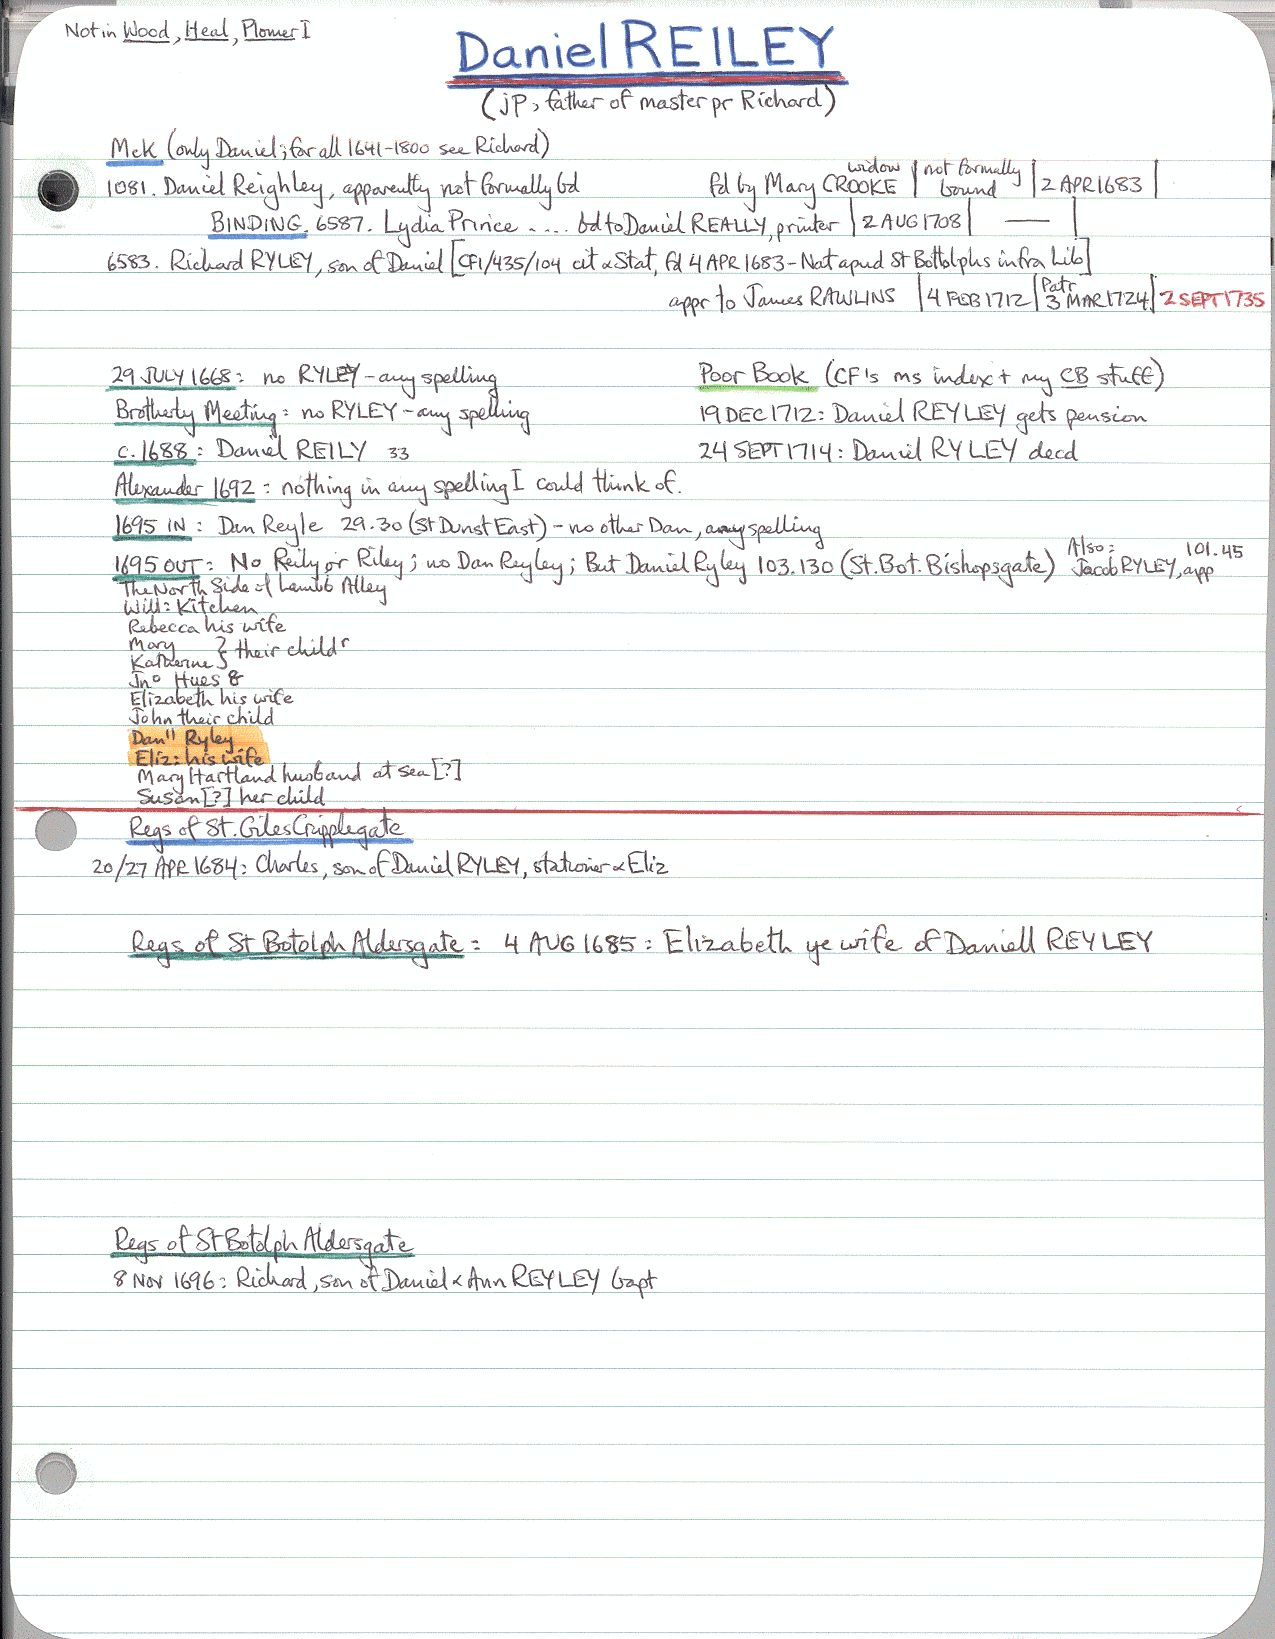 Not in Wood, Heal, Plomer I
Daniel REILEY
(jp, father of master pr Richard)
McK (only Daniel; for all 1641-1800 see Richard)
1081. Daniel Reighley, apparently not formally bd fd by Mary CROOKE widow | not formally bound | 2 APR 1683 |
BINDING. 6587. Lydia Prince .... bd to Daniel REALLY, printer | 2 AUG 1708 | — |
6583. Richard RYLEY, son of Daniel [CF1/435/104 cit & Stat, fd 4 APR 1683 - Nat apud St Bottolphs infra Lib]
appr to James RAWLINS | 4 FEB 1712 | Patr 3 MAR 1724 | 2 SEPT 1735
29 JULY 1668: no RYLEY - any spelling
Brotherly Meeting: no RYLEY - any spelling
c. 1688: Daniel REILY 33
Poor Book (CF's ms index + my CB stuff)
19 DEC 1712: Daniel REYLEY gets pension
24 SEPT 1714: Daniel RYLEY decd
Alexander 1692: nothing in any spelling I could think of.
1695 IN: Dan Reyle 29.30 (St Dunst East) - no other Dan, any spelling
1695 OUT: No Reily or Riley; no Dan Reyley; But Daniel Ryley 103.130 (St. Bot. Bishopsgate) Also: Jacob RYLEY, app 101.45
The North Side of Lamb Alley
Will: Kitchen
Rebecca his wife
Mary
Katherine } their childr
Jno Hues &
Elizabeth his wife
John their child
Danll Ryley
Eliz: his wife
Mary Hartland husband at sea [?]
Susan [?] her child
Regs of St. Giles Cripplegate
20/27 APR 1684: Charles, son of Daniel RYLEY, stationer & Eliz
Regs of St Botolph Aldersgate: 4 AUG 1685: Elizabeth ye wife of Daniell REYLEY
Regs of St Botolph Aldersgate
8 NOV 1696: Richard, son of Daniel & Ann REYLEY bapt